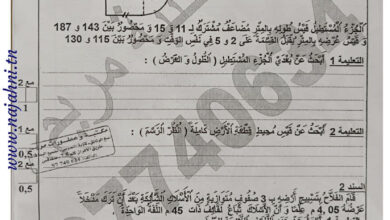 الْجُزْءُ الْمُسْتَطِيلُ قَيْسُ طُولِهِ بِالْمِتْرِ مُضَاعَفٌ مُشْتَرَكٌ لـ 11 و 15 وَ مَحْصُورٌ بَيْنَ 143 و 187
وَ قَيْسُ عَرْضِهِ بِالْمِتْرِ يَقْبَلُ الْقِسْمَةَ عَلَى 2 و 5 فِي نَفْسِ الْوَقْتِ وَ مَحْصُورٌ بَيْنَ 115 و 130
التعليمة 1 أَبْحَثُ عَنْ بُعْدَيْ الْجُزْءِ الْمُسْتَطِيلِ (الطُّولُ وَ الْعَرْضُ) :
مع 2
التعليمة 2 أَبْحَثُ عَنْ قَيْسِ مُحِيطِ قِطْعَةِ الْأَرْضِ كَامِلَةً (أُنْظُرْ الرَّسْمَ) :
مع 2
0,5
السند 2
قَامَ الْفَلَّاحُ بِتَسْيِيجِ أَرْضِهِ بِـ 3 صُفُوفٍ مُتَوَازِيَةٍ مِنَ الْأَسْلَاكِ الشَّائِكَةِ بَعْدَ أَنْ تَرَكَ مَدْخَلًا
عَرْضُهُ 4,05 م عِلْمًا وَ أَنَّ الْأَسْلَاكَ تُبَاعُ لَفَائِفَ ذَاتَ 45 م اللَّفَّةُ الْوَاحِدَةُ
0,5
www.najahni.tn
97 740 634